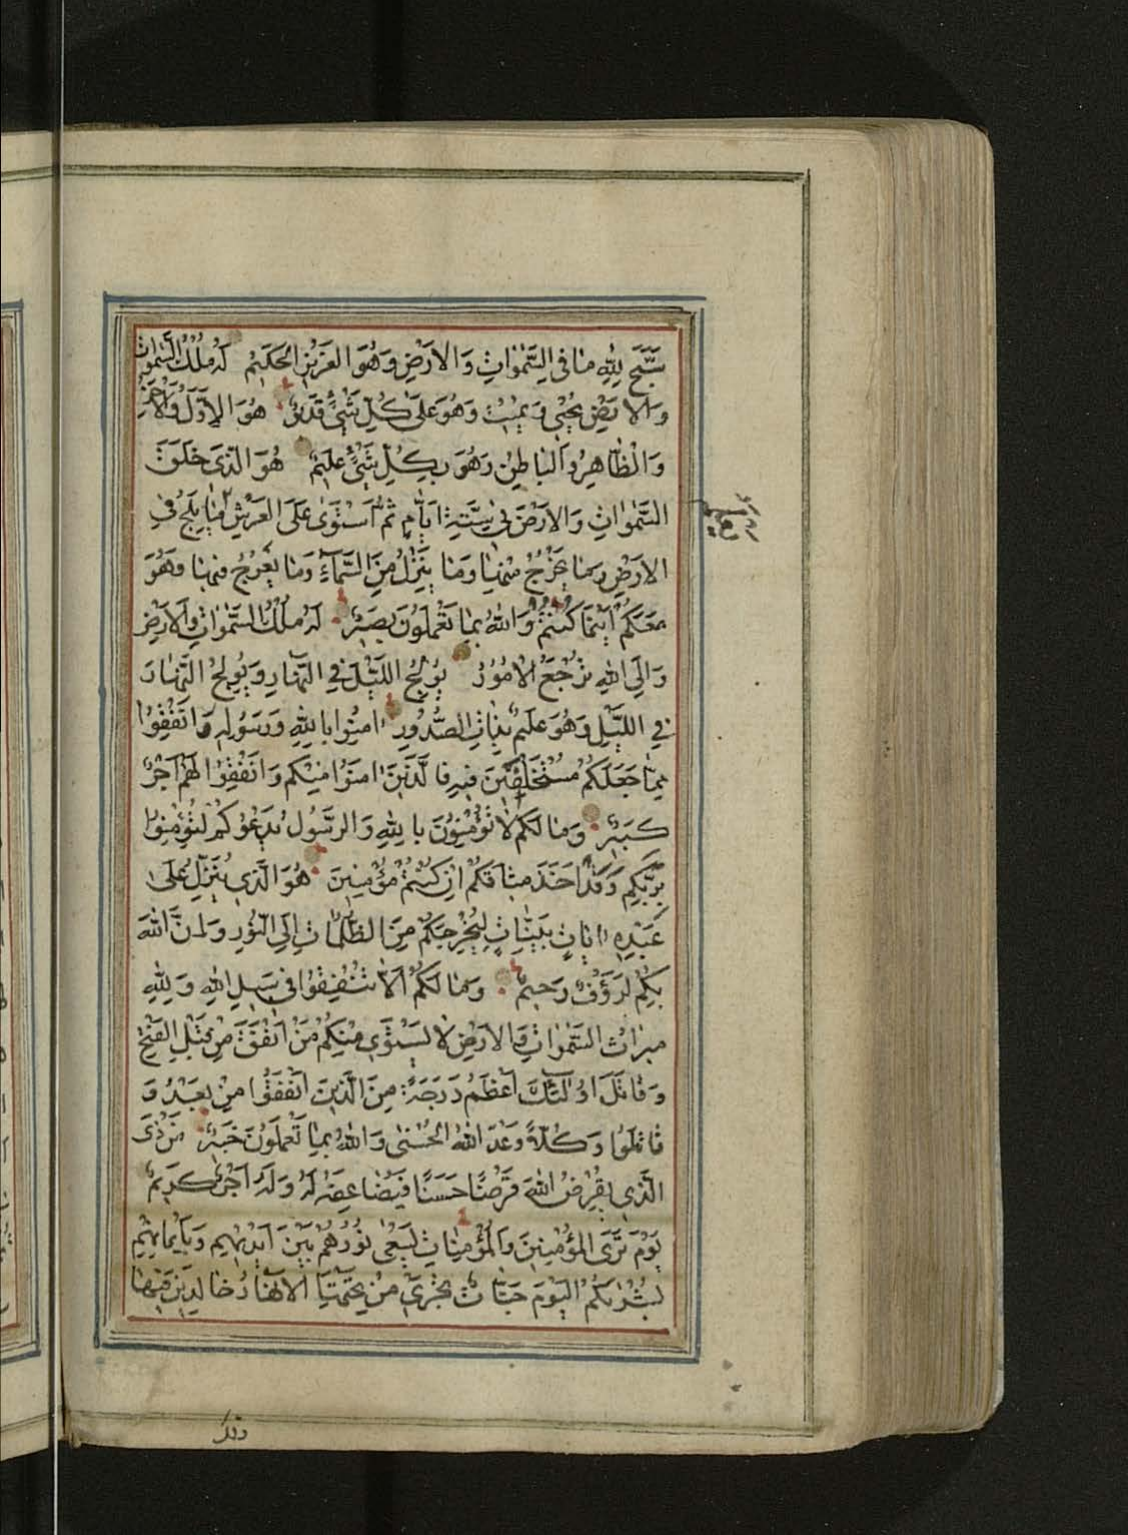 سَبَّحَ لِلّٰهِ مَا فِي السَّمٰوَاتِ وَالْاَرْضِ وَهُوَ الْعَزِيْزُ الْحَكِيْمُ لَهُ مُلْكُ السَّمٰوَاتِ
وَالْاَرْضِ يُحْيٖي وَيُمِيْتُ وَهُوَ عَلٰى كُلِّ شَيْءٍ قَدِيْرٌ هُوَ الْاَوَّلُ وَالْاٰخِرُ
وَالظَّاهِرُ وَالْبَاطِنُ وَهُوَ بِكُلِّ شَيْءٍ عَلِيْمٌ هُوَ الَّذِي خَلَقَ
السَّمٰوَاتِ وَالْاَرْضَ فِي سِتَّةِ اَيَّامٍ ثُمَّ اسْتَوٰى عَلَى الْعَرْشِ مَا يَلِجُ فِي
الْاَرْضِ وَمَا يَخْرُجُ مِنْهَا وَمَا يَنْزِلُ مِنَ السَّمَاءِ وَمَا يَعْرُجُ فِيْهَا وَهُوَ
مَعَكُمْ اَيْنَمَا كُنْتُمْ وَاللّٰهُ بِمَا تَعْمَلُوْنَ بَصِيْرٌ لَهُ مُلْكُ السَّمٰوَاتِ وَالْاَرْضِ
وَاِلَى اللّٰهِ تُرْجَعُ الْاُمُوْرُ يُوْلِجُ اللَّيْلَ فِي النَّهَارِ وَيُوْلِجُ النَّهَارَ
فِي اللَّيْلِ وَهُوَ عَلِيْمٌ بِذَاتِ الصُّدُوْرِ اٰمِنُوْا بِاللّٰهِ وَرَسُوْلِهٖ وَاَنْفِقُوْا
مِمَّا جَعَلَكُمْ مُسْتَخْلَفِيْنَ فِيْهِ فَالَّذِيْنَ اٰمَنُوْا مِنْكُمْ وَاَنْفَقُوْا لَهُمْ اَجْرٌ
كَبِيْرٌ وَمَا لَكُمْ لَا تُؤْمِنُوْنَ بِاللّٰهِ وَالرَّسُوْلُ يَدْعُوْكُمْ لِتُؤْمِنُوْا
بِرَبِّكُمْ وَقَدْ اَخَذَ مِيْثَاقَكُمْ اِنْ كُنْتُمْ مُؤْمِنِيْنَ هُوَ الَّذِي يُنَزِّلُ عَلٰى
عَبْدِهٖ اٰيَاتٍ بَيِّنَاتٍ لِيُخْرِجَكُمْ مِنَ الظُّلُمَاتِ اِلَى النُّوْرِ وَاِنَّ اللّٰهَ
بِكُمْ لَرَؤُفٌ رَحِيْمٌ وَمَا لَكُمْ اَلَّا تُنْفِقُوْا فِي سَبِيْلِ اللّٰهِ وَلِلّٰهِ
مِيْرَاثُ السَّمٰوَاتِ وَالْاَرْضِ لَا يَسْتَوِي مِنْكُمْ مَنْ اَنْفَقَ مِنْ قَبْلِ الْفَتْحِ
وَقَاتَلَ اُولٰئِكَ اَعْظَمُ دَرَجَةً مِنَ الَّذِيْنَ اَنْفَقُوْا مِنْ بَعْدُ وَ
قَاتَلُوْا وَكُلًّا وَعَدَ اللّٰهُ الْحُسْنٰى وَاللّٰهُ بِمَا تَعْمَلُوْنَ خَبِيْرٌ مَنْ ذَا
الَّذِي يُقْرِضُ اللّٰهَ قَرْضًا حَسَنًا فَيُضَاعِفَهُ لَهُ وَلَهُ اَجْرٌ كَرِيْمٌ
يَوْمَ تَرَى الْمُؤْمِنِيْنَ وَالْمُؤْمِنَاتِ يَسْعٰى نُوْرُهُمْ بَيْنَ اَيْدِيْهِمْ وَبِاَيْمَانِهِمْ
بُشْرٰىكُمُ الْيَوْمَ جَنَّاتٌ تَجْرِي مِنْ تَحْتِهَا الْاَنْهَارُ خَالِدِيْنَ فِيْهَا
ذلك